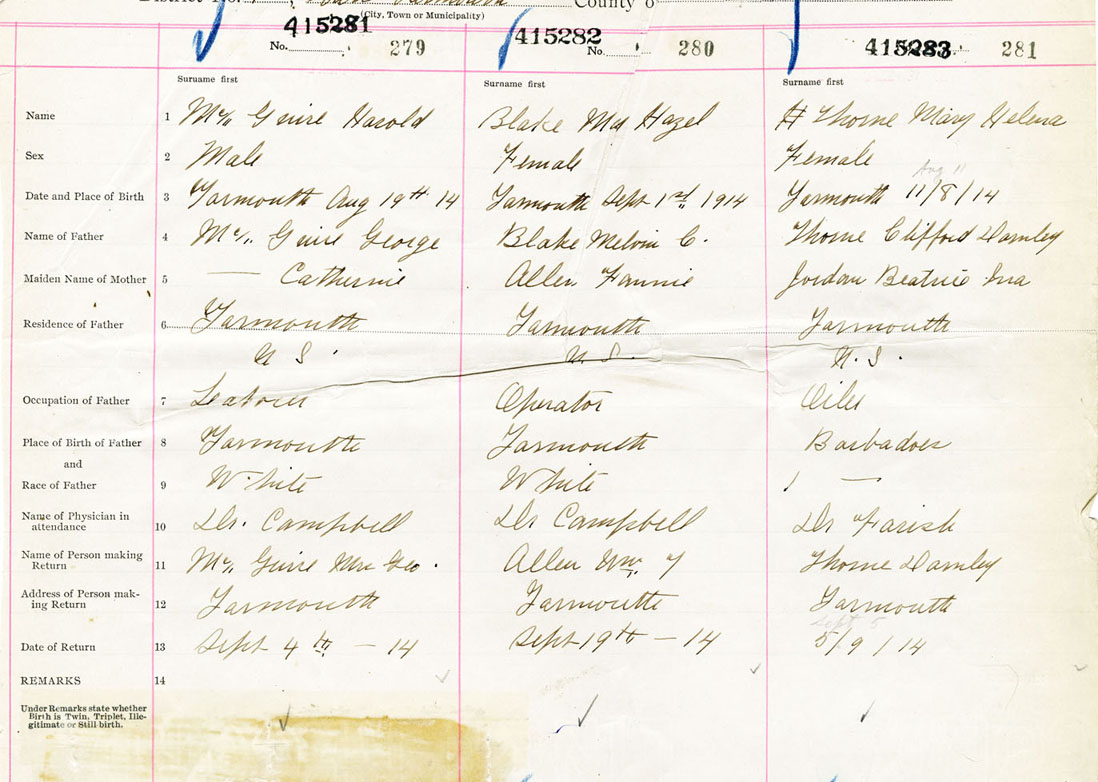 District No. County o
(City, Town or Municipality)
415281 415282 415283
No. 279 No. 280 281
Surname first Surname first Surname first
Name 1 Mc Guire Harold Blake Md Hazel Thorne Mary Helena
Sex 2 Male Female Female
Aug 11
Date and Place of Birth 3 Yarmouth Aug 19th 14 Yarmouth Sept 1st 1914 Yarmouth 11/8/14
Name of Father 4 Mc Guire George Blake Melvin C. Thorne Clifford Darnley
Maiden Name of Mother 5 — Catherine Allen Fannie Jordan Beatrice Ina
Residence of Father 6 Yarmouth Yarmouth Yarmouth
N S. N. S. N. S.
Occupation of Father 7 Operator Oiler
Place of Birth of Father 8 Yarmouth Yarmouth Barbadoes
and
Race of Father 9 White White —
Name of Physician in attendance 10 Dr. Campbell Dr Campbell Dr Farish
Name of Person making Return 11 Mc Guire Mrs Geo. Allen Wm Thorne Darnley
Address of Person making Return 12 Yarmouth Yarmouth Yarmouth
Sept 5
Date of Return 13 Sept 4th — 14 Sept 19th — 14 5/9/14
REMARKS 14
Under Remarks state whether
Birth is Twin, Triplet, Ille-
gitimate or Still birth.